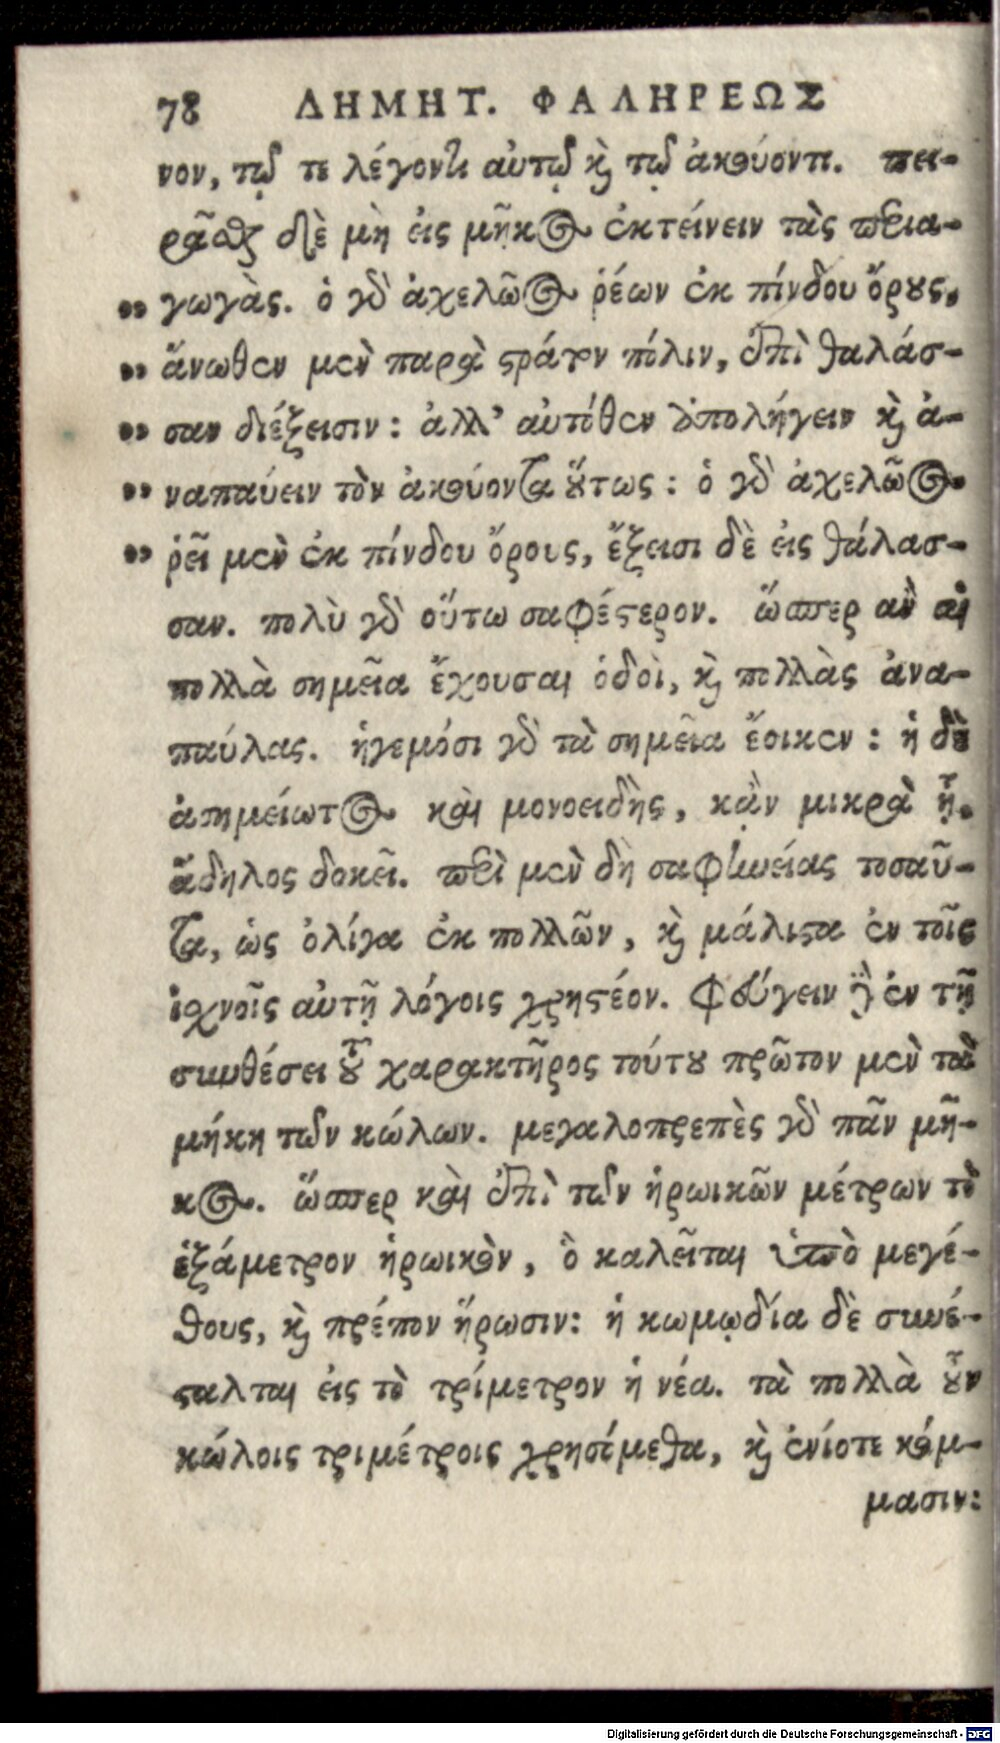 78 ΔΗΜΗΤ. ΦΑΛΗΡΕΩΣ
νον, τῷ τε λέγοντι αὐτῷ καὶ τῷ ἀκούοντι. πει-
ρᾶσθαι δὲ μὴ εἰς μῆκος ἐκτείνειν τὰς περια-
" γωγὰς. ὁ γὰρ ἀχελῶος ῥέων ἐκ πίνδου ὄρους,
" ἄνωθεν μὲν παρὰ στράτον πόλιν, ἐπὶ θαλάσ-
" σαν διέξεισιν: ἀλλ' αὐτόθεν ἀπολήγειν καὶ ἀ-
" ναπαύειν τὸν ἀκούοντα οὕτως: ὁ γὰρ ἀχελῶος
" ῥεῖ μὲν ἐκ πίνδου ὄρους, ἔξεισι δὲ εἰς θάλασ-
σαν. πολὺ γὰρ οὕτω σαφέστερον. ὥσπερ ἂν αἱ
πολλὰ σημεῖα ἔχουσαι ὁδοὶ, καὶ πολλὰς ἀνα-
παύλας. ἡγεμόσι γὰρ τὰ σημεῖα ἔοικεν: ἡ δὲ
ἀσημείωτος καὶ μονοειδὴς, κἂν μικρὰ ᾖ,
ἄδηλος δοκεῖ. περὶ μὲν δὴ σαφηνείας τοσαῦ-
τα, ὡς ὀλίγα ἐκ πολλῶν, καὶ μάλιστα ἐν τοῖς
ἰσχνοῖς αὐτῇ λόγοις χρηστέον. φεύγειν δὲ ἐν τῇ
συνθέσει τοῦ χαρακτῆρος τούτου πρῶτον μὲν τὰ
μήκη τῶν κώλων. μεγαλοπρεπὲς γὰρ πᾶν μῆ-
κος. ὥσπερ καὶ ἐπὶ τῶν ἡρωικῶν μέτρων τὸ
ἑξάμετρον ἡρωικὸν, ὃ καλεῖται ὑπὸ μεγέ-
θους, καὶ πρέπον ἥρωσιν: ἡ κωμῳδία δὲ συνέ-
σταλται εἰς τὸ τρίμετρον ἡ νέα. τὰ πολλὰ οὖν
κώλοις τριμέτροις χρησόμεθα, καὶ ἐνίοτε κόμ-
μασιν:
Digitalisierung gefördert durch die Deutsche Forschungsgemeinschaft - DFG